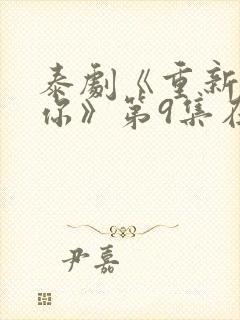 泰劇《重新
你》第9集在
尹嘉